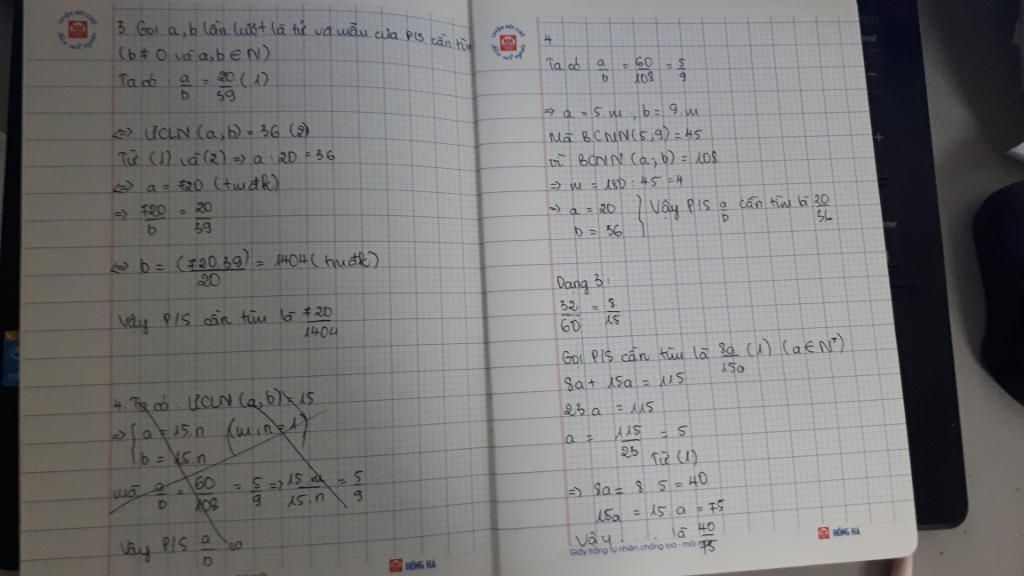 3. Gọi a, b lần lượt là tử và mẫu của P/S cần tìm
(b ≠ 0 và a, b ∈ N)
Ta có : a/b = 20/39 (1)
⇔ ƯCLN (a, b) = 36 (2)
Từ (1) và (2) ⇒ a : 20 = 36
⇔ a = 720 (tmđk)
⇒ 720/b = 20/39
⇔ b = (720.39)/20 = 1404 (tmđk)
Vậy P/S cần tìm là 720/1404
4. Ta có : ƯCLN (a, b) = 15
⇒ { a = 15.n (m,n = 1)
b = 15.n
mà a/b = 60/108 = 5/9 ⇒ 15.m/15.n = 5/9
Vậy P/S a/b
HỒNG HÀ
4.
Ta có a/b = 60/108 = 5/9
⇒ a = 5.m , b = 9.m
Mà BCNN (5, 9) = 45
vì BCNN (a, b) = 108
⇒ m = 180 : 45 = 4
⇒ a = 20 } Vậy P/S a/b cần tìm là 20/36
b = 36
Dạng 3 :
32/60 = 8/15
Gọi P/S cần tìm là 8a/15a (1) (a ∈ N*)
8a + 15a = 115
23.a = 115
a = 115/23 = 5
Từ (1)
⇒ 8a = 8.5 = 40
15a = 15.a = 75
Vậy .... là 40/75
Giấy trắng tự nhiên chống loá - mỏi
HỒNG HÀ